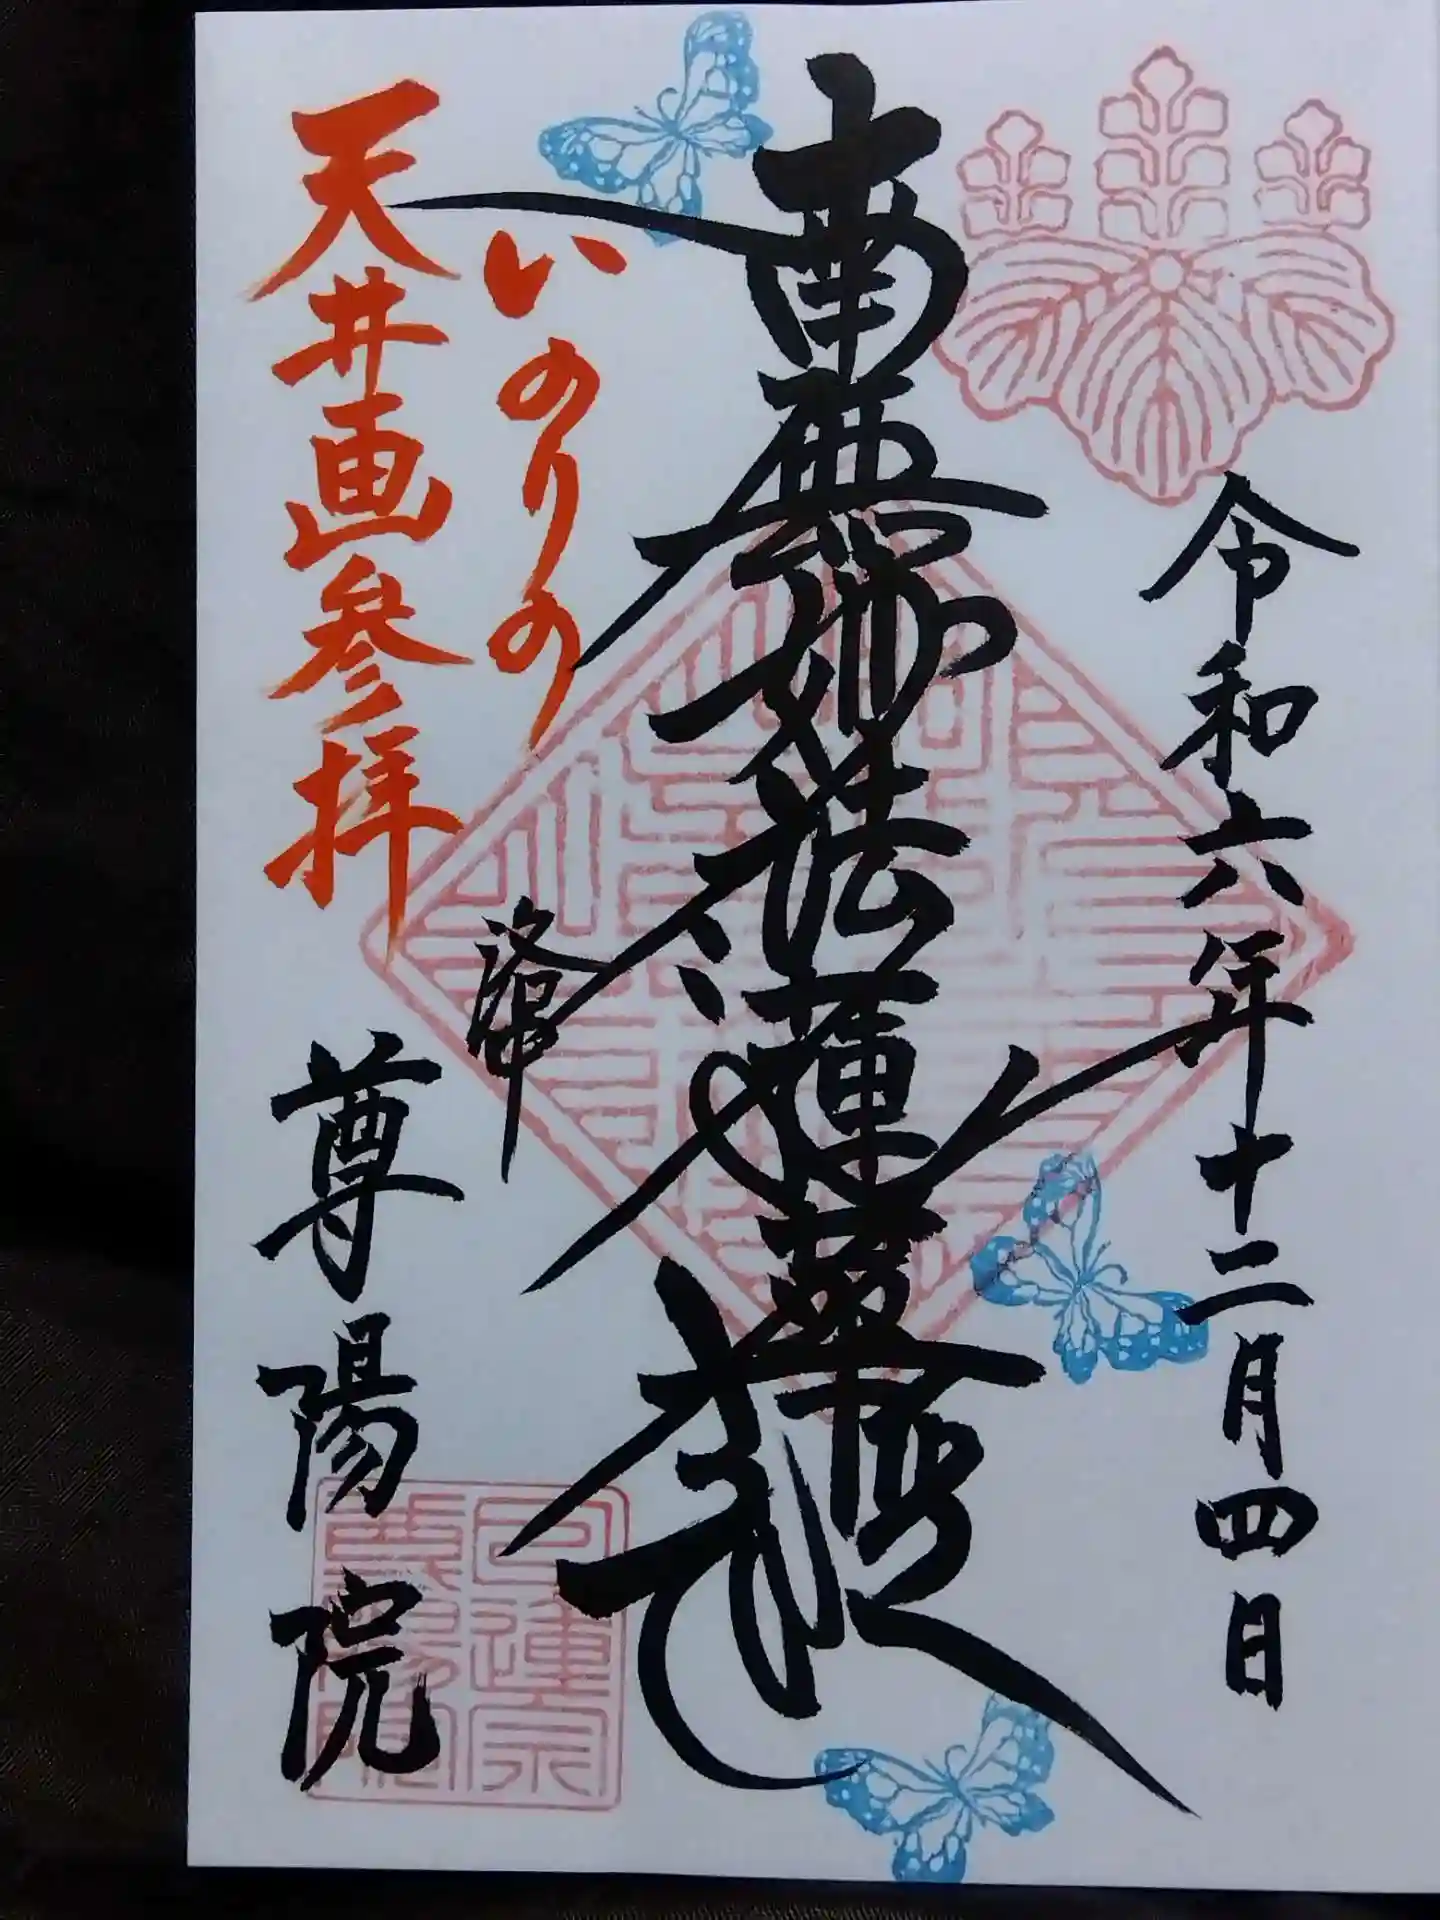 令和六年十二月四日
南無妙法蓮華経
洛中
いのりの
天井画参拝
尊陽院
日蓮宗
尊陽院